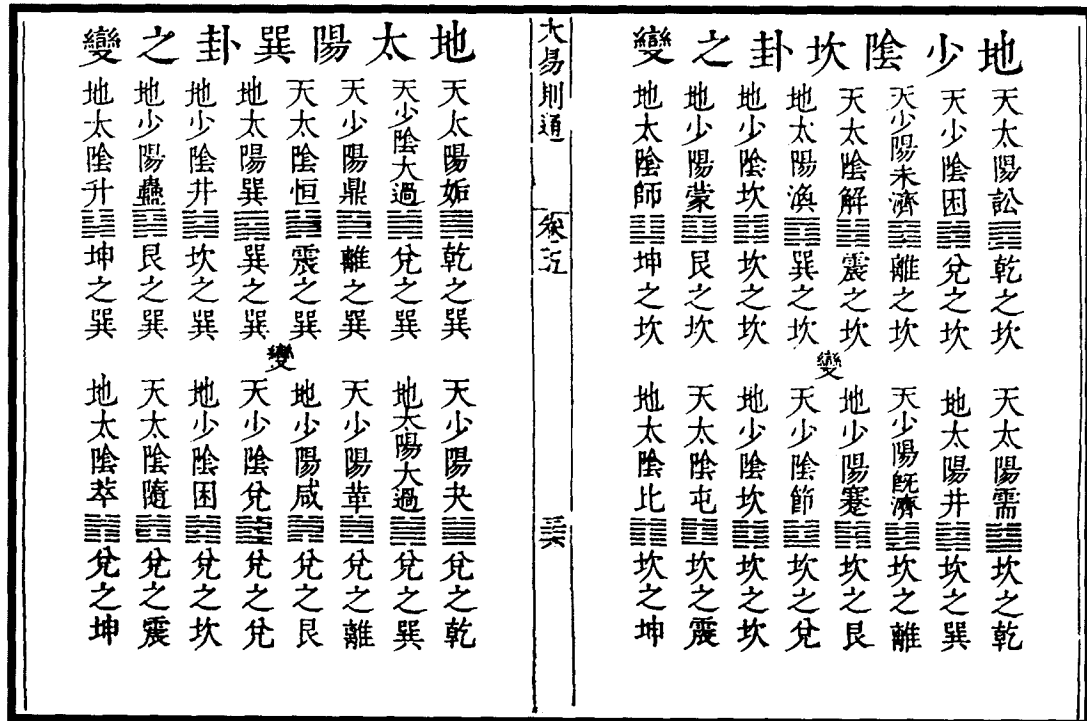 地少陰坎卦之變
天太陽訟䷅乾之坎
天少陰困䷮兌之坎
天少陽未濟䷿離之坎
天太陰解䷧震之坎
地太陽渙䷺巽之坎
地少陰坎䷜坎之坎
地少陽蒙䷃艮之坎
地太陰師䷆坤之坎
變
天太陽需䷄坎之乾
地太陽井䷯坎之巽
天少陽既濟䷾坎之離
地少陽蹇䷦坎之艮
天少陰節䷻坎之兌
地少陰坎䷜坎之坎
天太陰屯䷂坎之震
地太陰比䷇坎之坤
大易則通
卷
地太陽巽卦之變
天太陽姤䷫乾之巽
天少陰大過䷛兌之巽
天少陽鼎䷱離之巽
天太陰恒䷟震之巽
地太陽巽䷸巽之巽
地少陰井䷯坎之巽
地少陽蠱䷑艮之巽
地太陰升䷭坤之巽
變
天少陽夬䷪兌之乾
地太陽大過䷛兌之巽
天少陽革䷰兌之離
地少陽咸䷞兌之艮
天少陰兌䷹兌之兌
地少陰困䷮兌之坎
天太陰隨䷐兌之震
地太陰萃䷬兌之坤